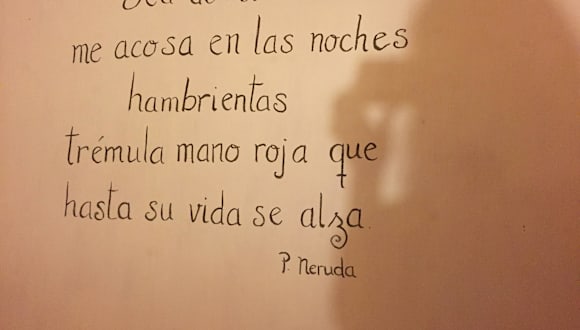 me acosa en las noches
hambrientas
trémula mano roja que
hasta su vida se alza.
P. Neruda